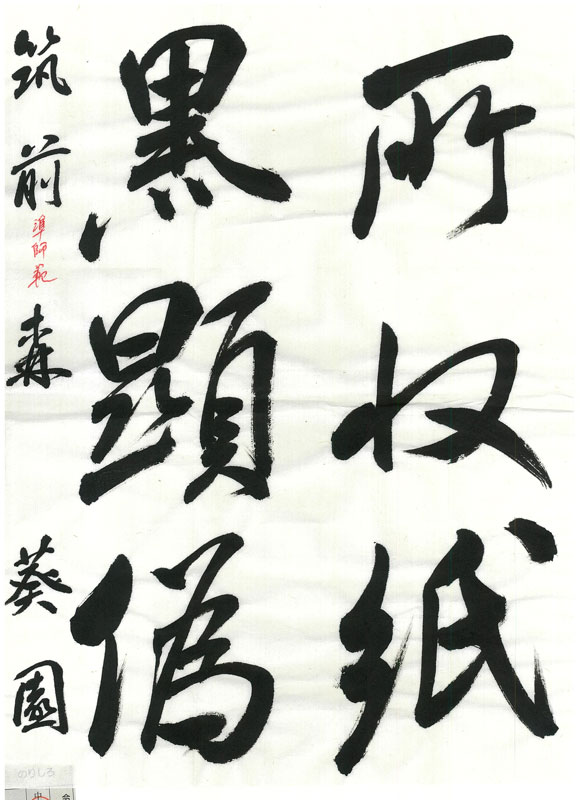 所収紙
黒顕偽
筑前 準師範 森 葵園
のりしろ